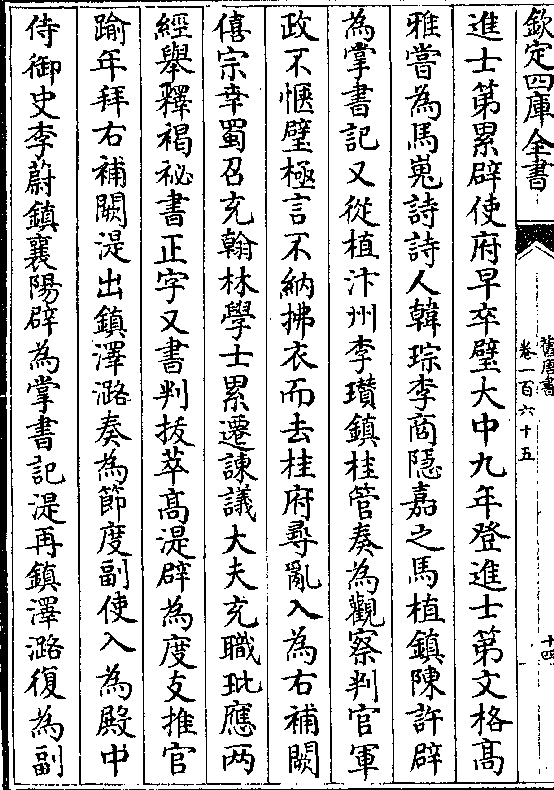 欽定四庫全書
舊唐書
卷一百六十五
十四
進士第累辟使府早卒璧大中九年登進士第文格髙
雅嘗為馬嵬詩詩人韓琮李商隱嘉之馬植鎮陳許辟
為掌書記又從植汴州李瓚鎮桂管奏為觀察判官軍
政不愜璧極言不納拂衣而去桂府尋亂入為右補闕
僖宗幸蜀召充翰林學士累遷諫議大夫充職玭應两
經舉釋褐祕書正字又書判拔萃髙湜辟為度支推官
踰年拜右補闕湜出鎮澤潞奏為節度副使入為殿中
侍御史李蔚鎮襄陽辟為掌書記湜再鎮澤潞復為副